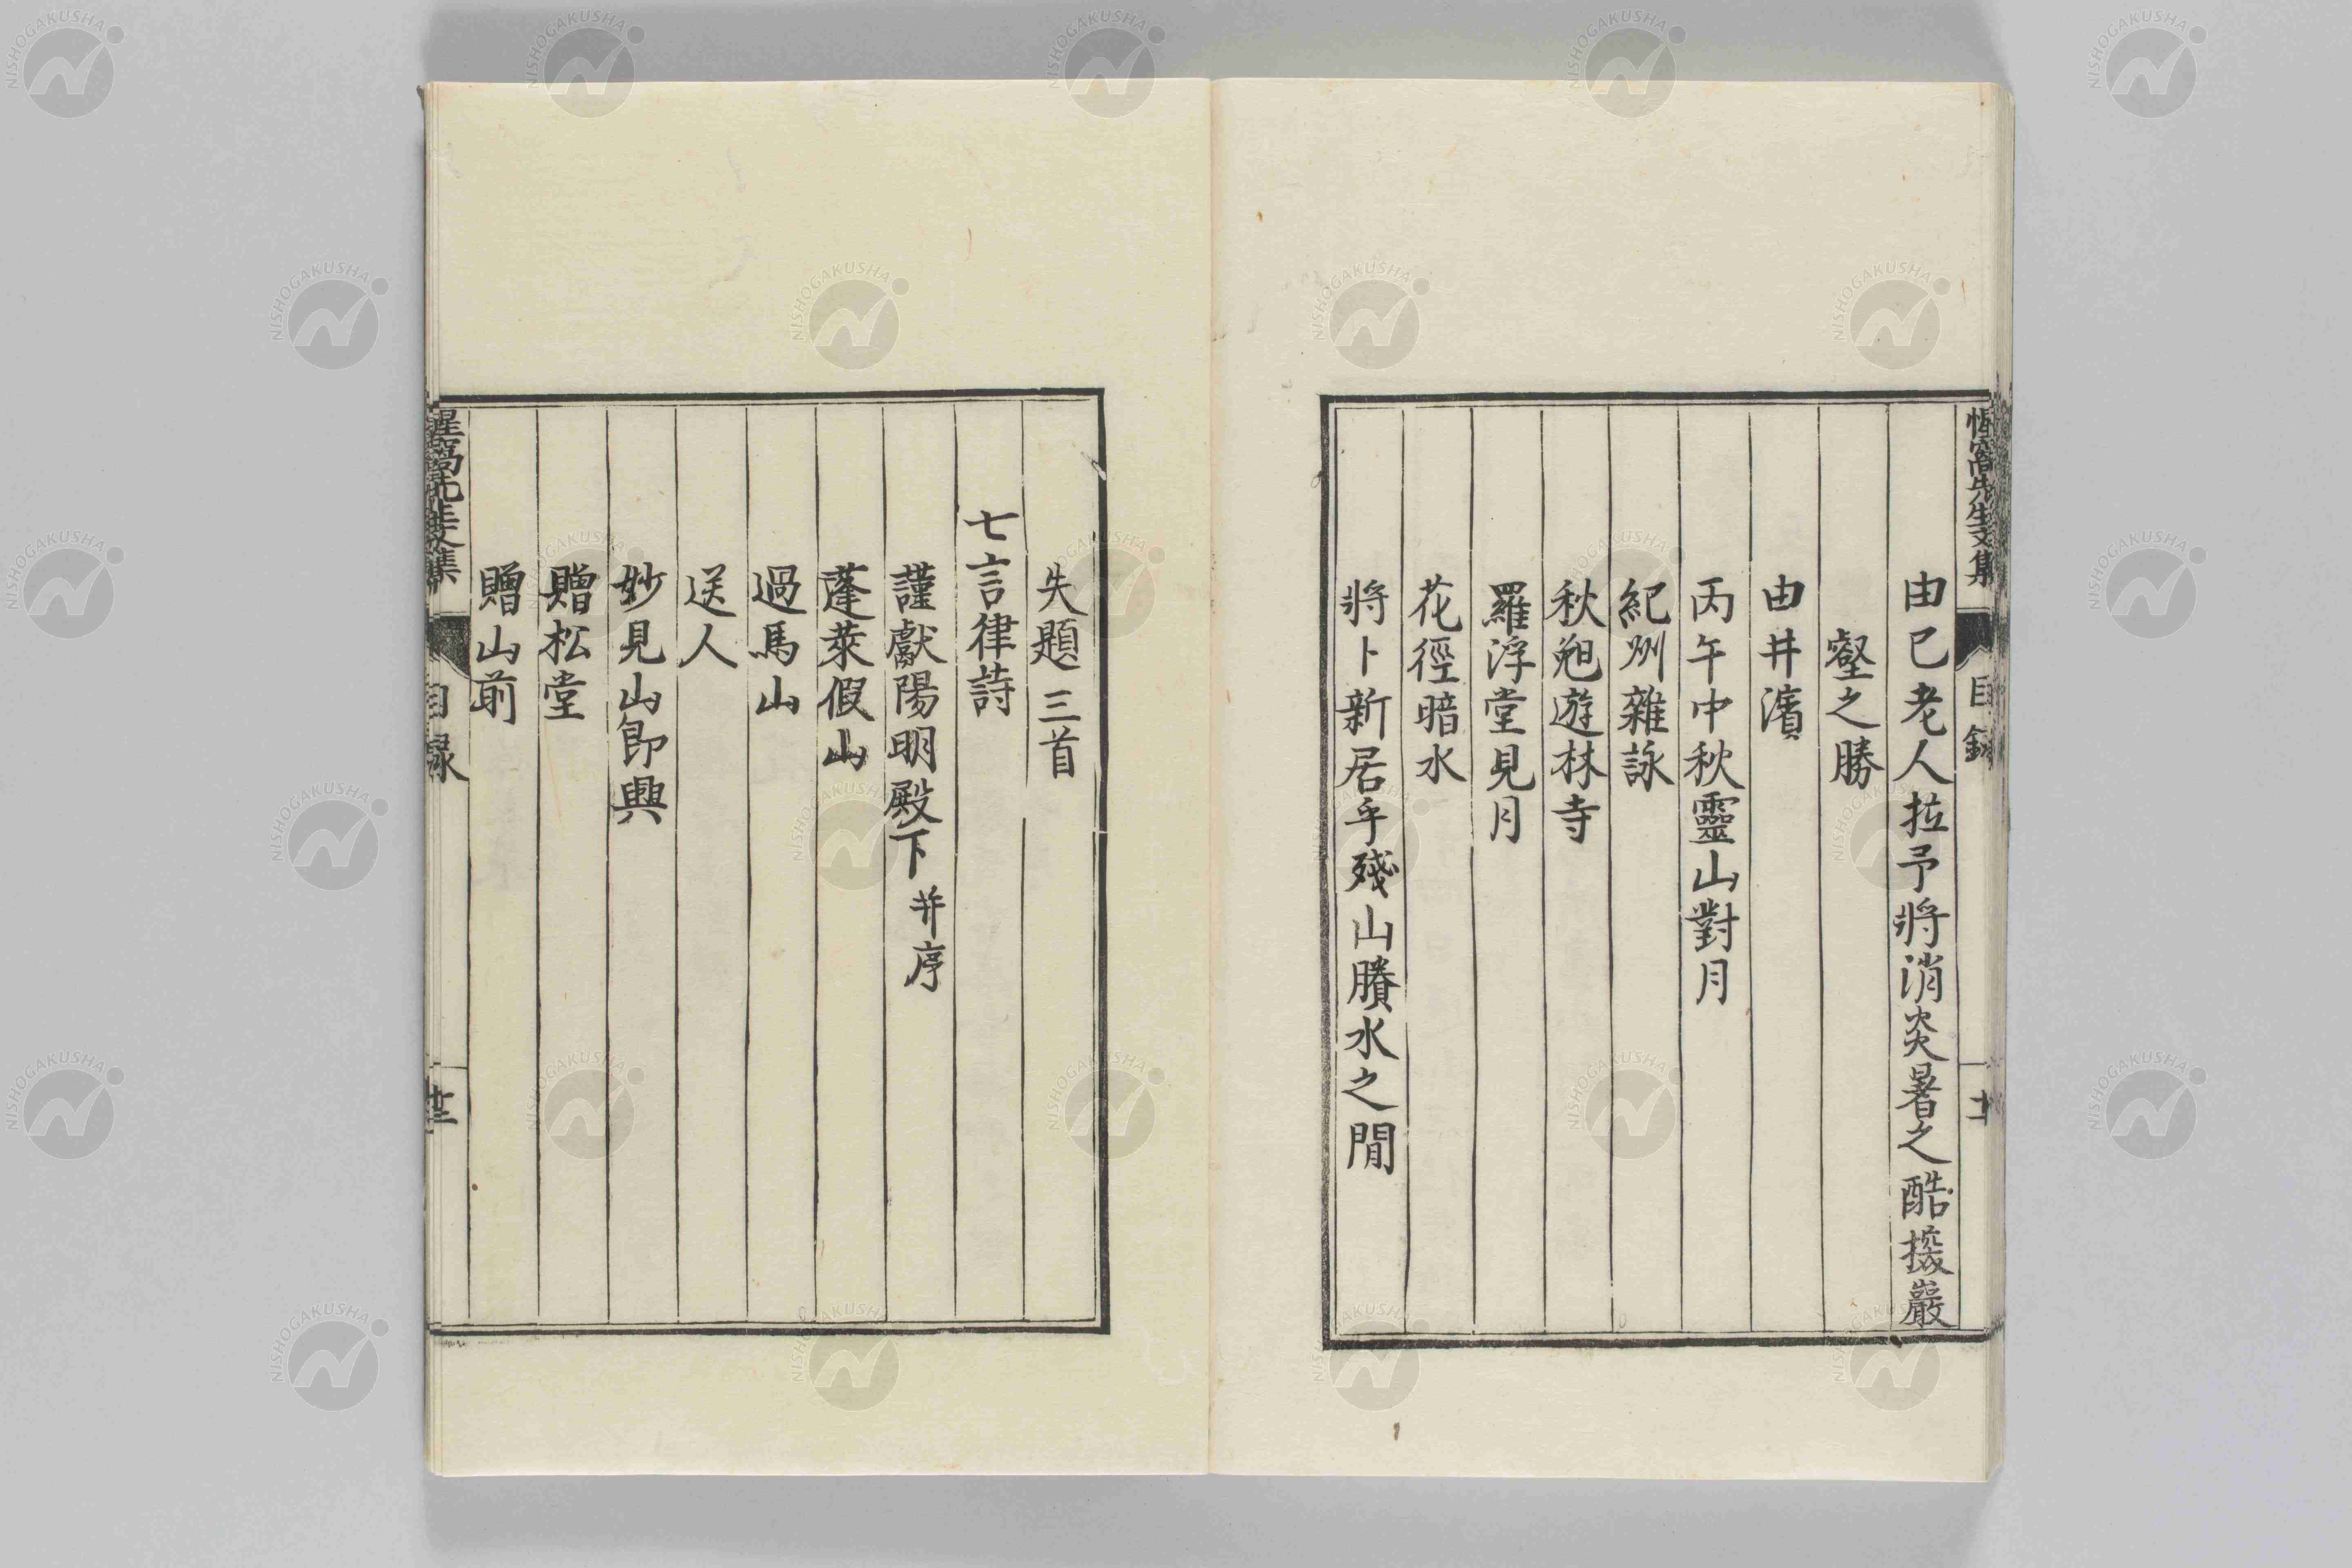 惺窩先生文集
目錄
由己老人拉予將消炎暑之酷撥巖
壑之勝
由井濱
丙午中秋靈山對月
紀州雜詠
秋旭遊林寺
羅浮堂見月
花徑暗水
將卜新居乎殘山賸水之間
失題三首
七言律詩
謹獻陽明殿下并序
蓬萊假山
過馬山
送人
妙見山即興
贈松堂
贈山前
惺窩先生文集
目錄
NISHOGAKUSHA